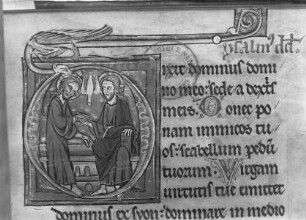 ixit dominus domi
no meo: sede a dextris
meis. Donec po
nam inimicos tu
os: scabellum pedum
tuorum. Virgam
virtutis tue emittet
dominus ex syon: dominare in medio